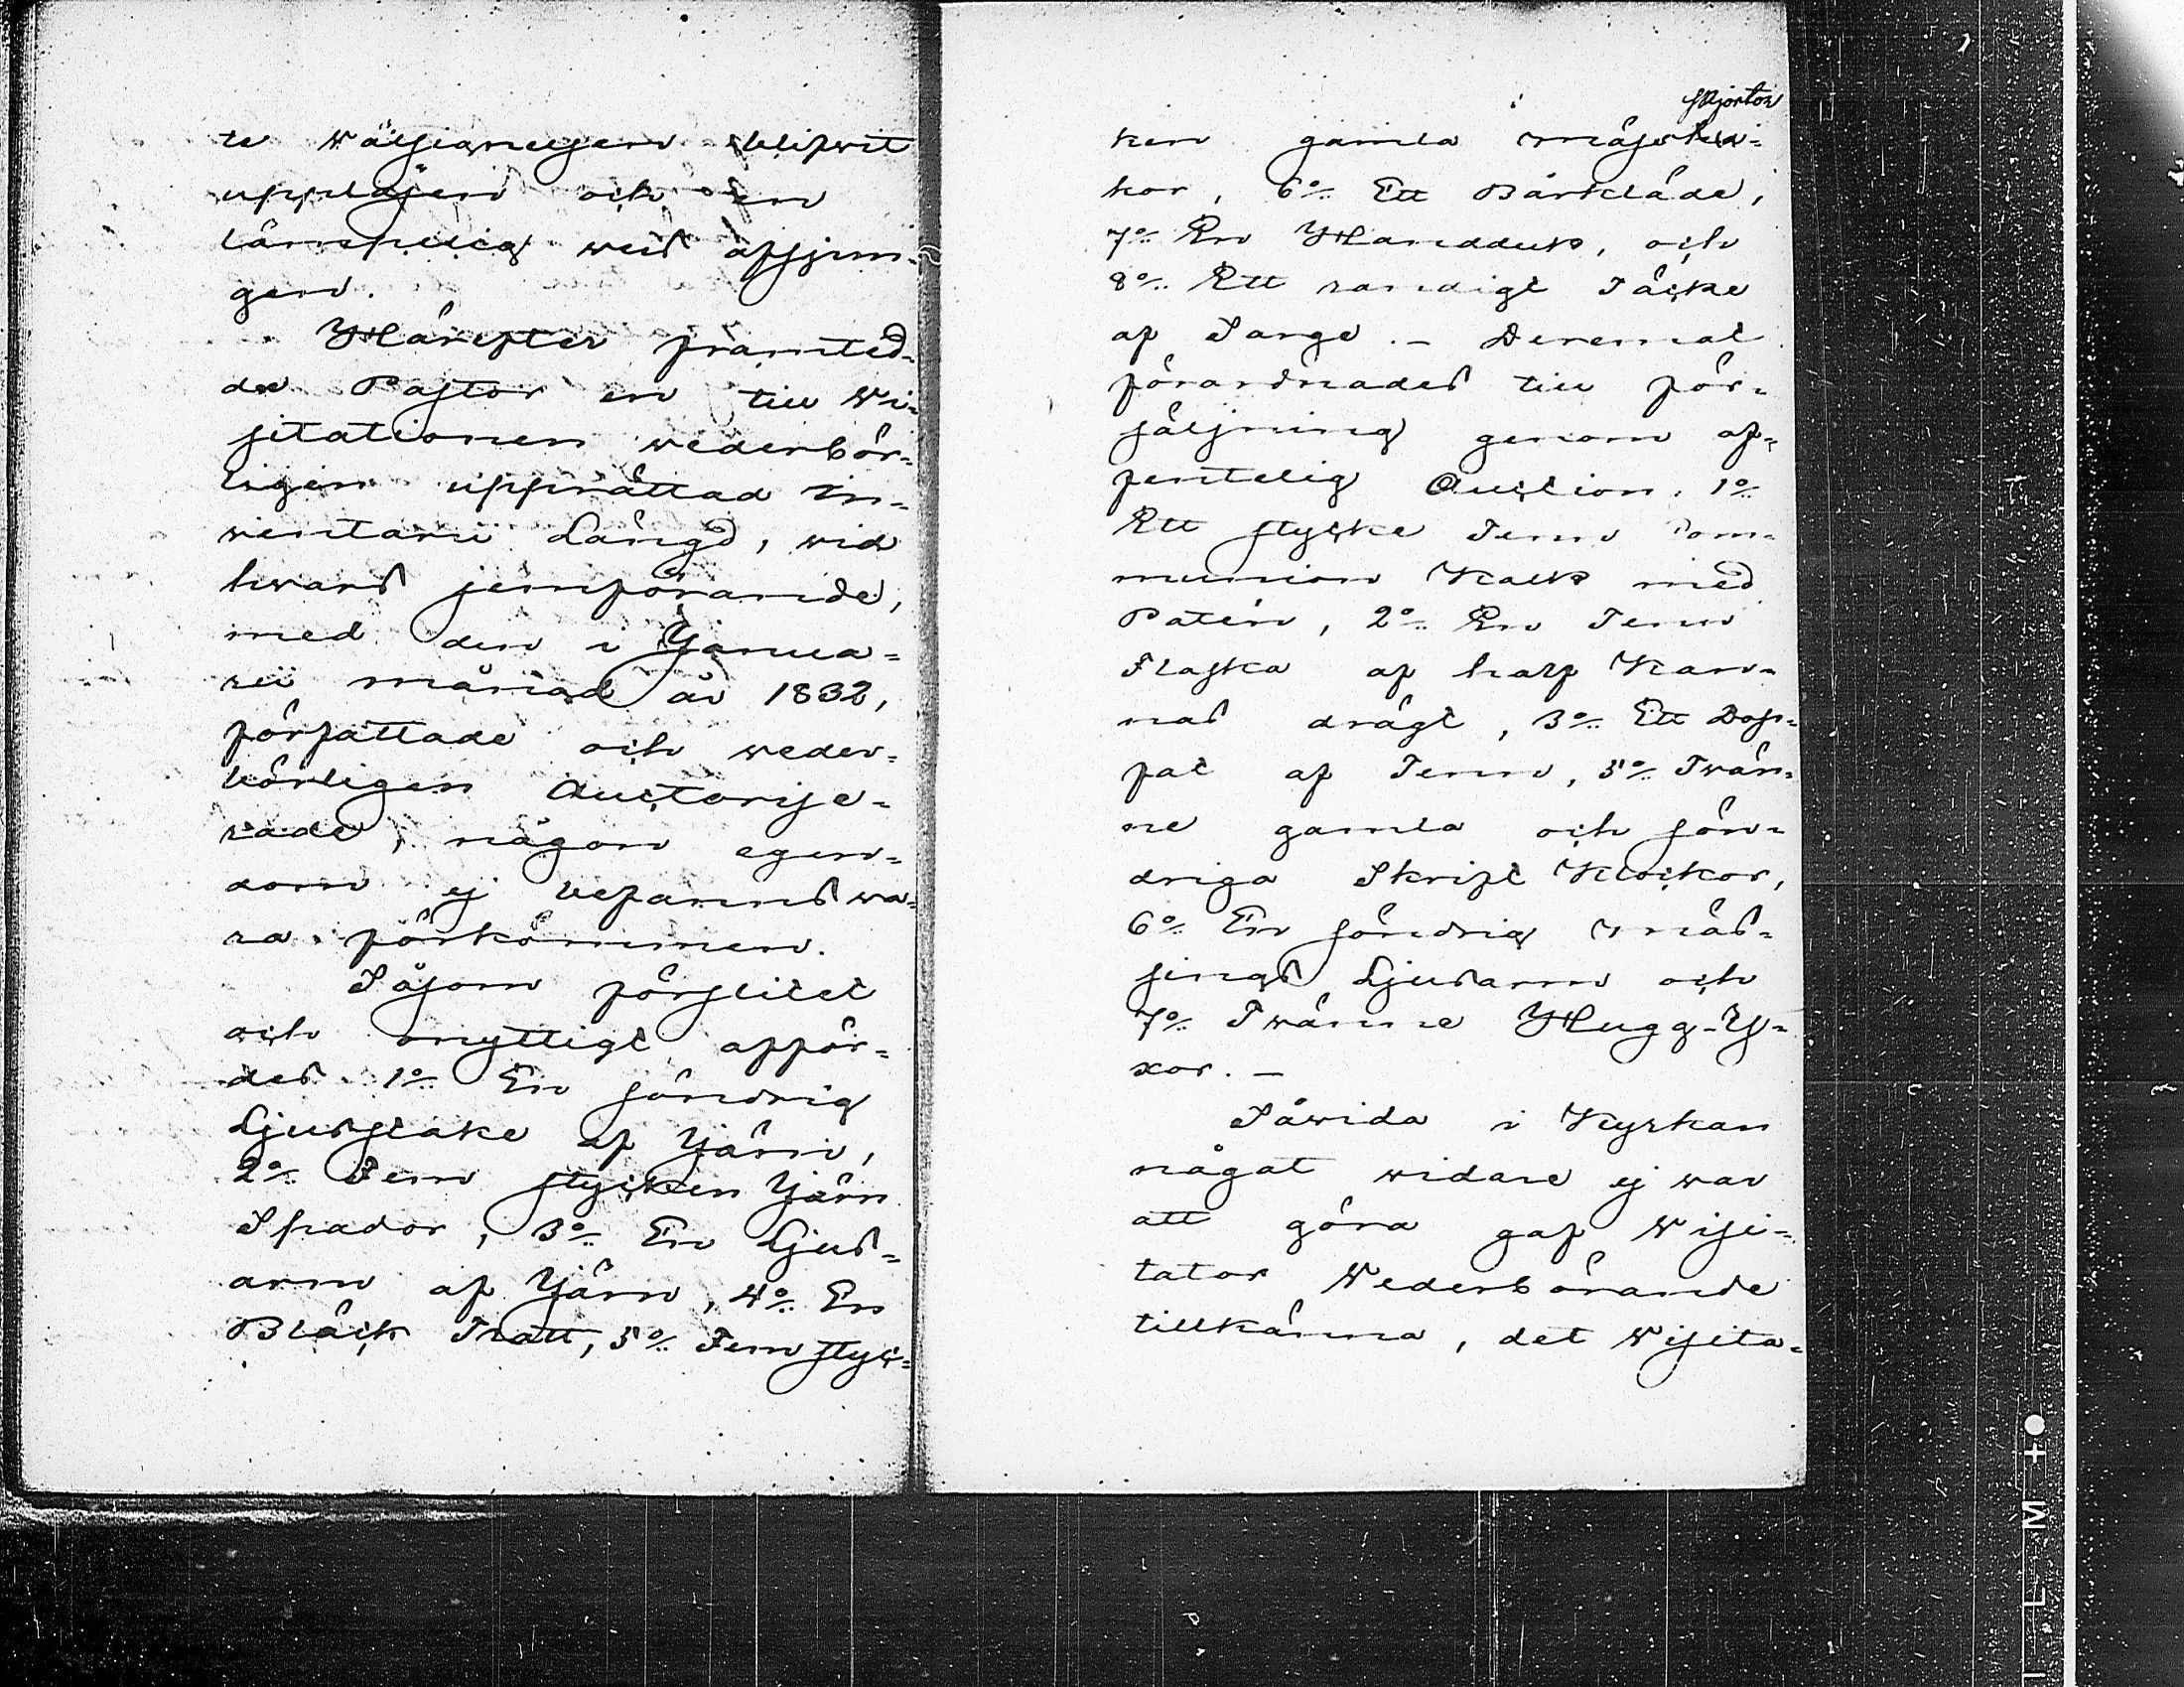 te Wälsignelsen blifwit
uppläsen och en
lämpelig vers afsjun-
gen.
Härefter framted-
de Pastor en till Wi-
sitationen wederbör-
ligen upprättad In-
ventarii Längd, wid
hwars jemförande,
med den i Janua-
rii månad år 1832,
författade och weder-
börligen Auctorise-
rade, någon egen-
dom ej befanns wa-
ra förkommen.
Såsom förslitet
och onyttigt afför-
des 1o En söndrig
Ljusstake af Järn,
2o Fem stycken Järn
Spador, 3o En Ljus-
arm af Järn, 4o En
Bläck Tratt, 5o Fem styc-
ken gamla mäss
skjortor
kor, 6o Ett Bårkläde,
7o En Handduk, och
8o Ett randigt Täcke
af Sarge. - Deremot
förordnades till för-
säljning genom of-
fentelig Auction. 1o
Ett stycke Tenn Com-
munion Kalk med
Patén, 2o En Tenn
Flaska af half Kan-
nas drägt, 3o Ett Dop-
fat af Tenn, 5o Twän-
ne gamla och sön-
driga Skrift Klockor,
6o En söndrig mäs-
sings Ljusarm och
7o Twänne Hugg-Y-
xor. -
Såwida i Kyrkan
något widare ej war
att göra gaf Wisi-
tator Wederbörande
tillkänna, det Wisita-
L M +